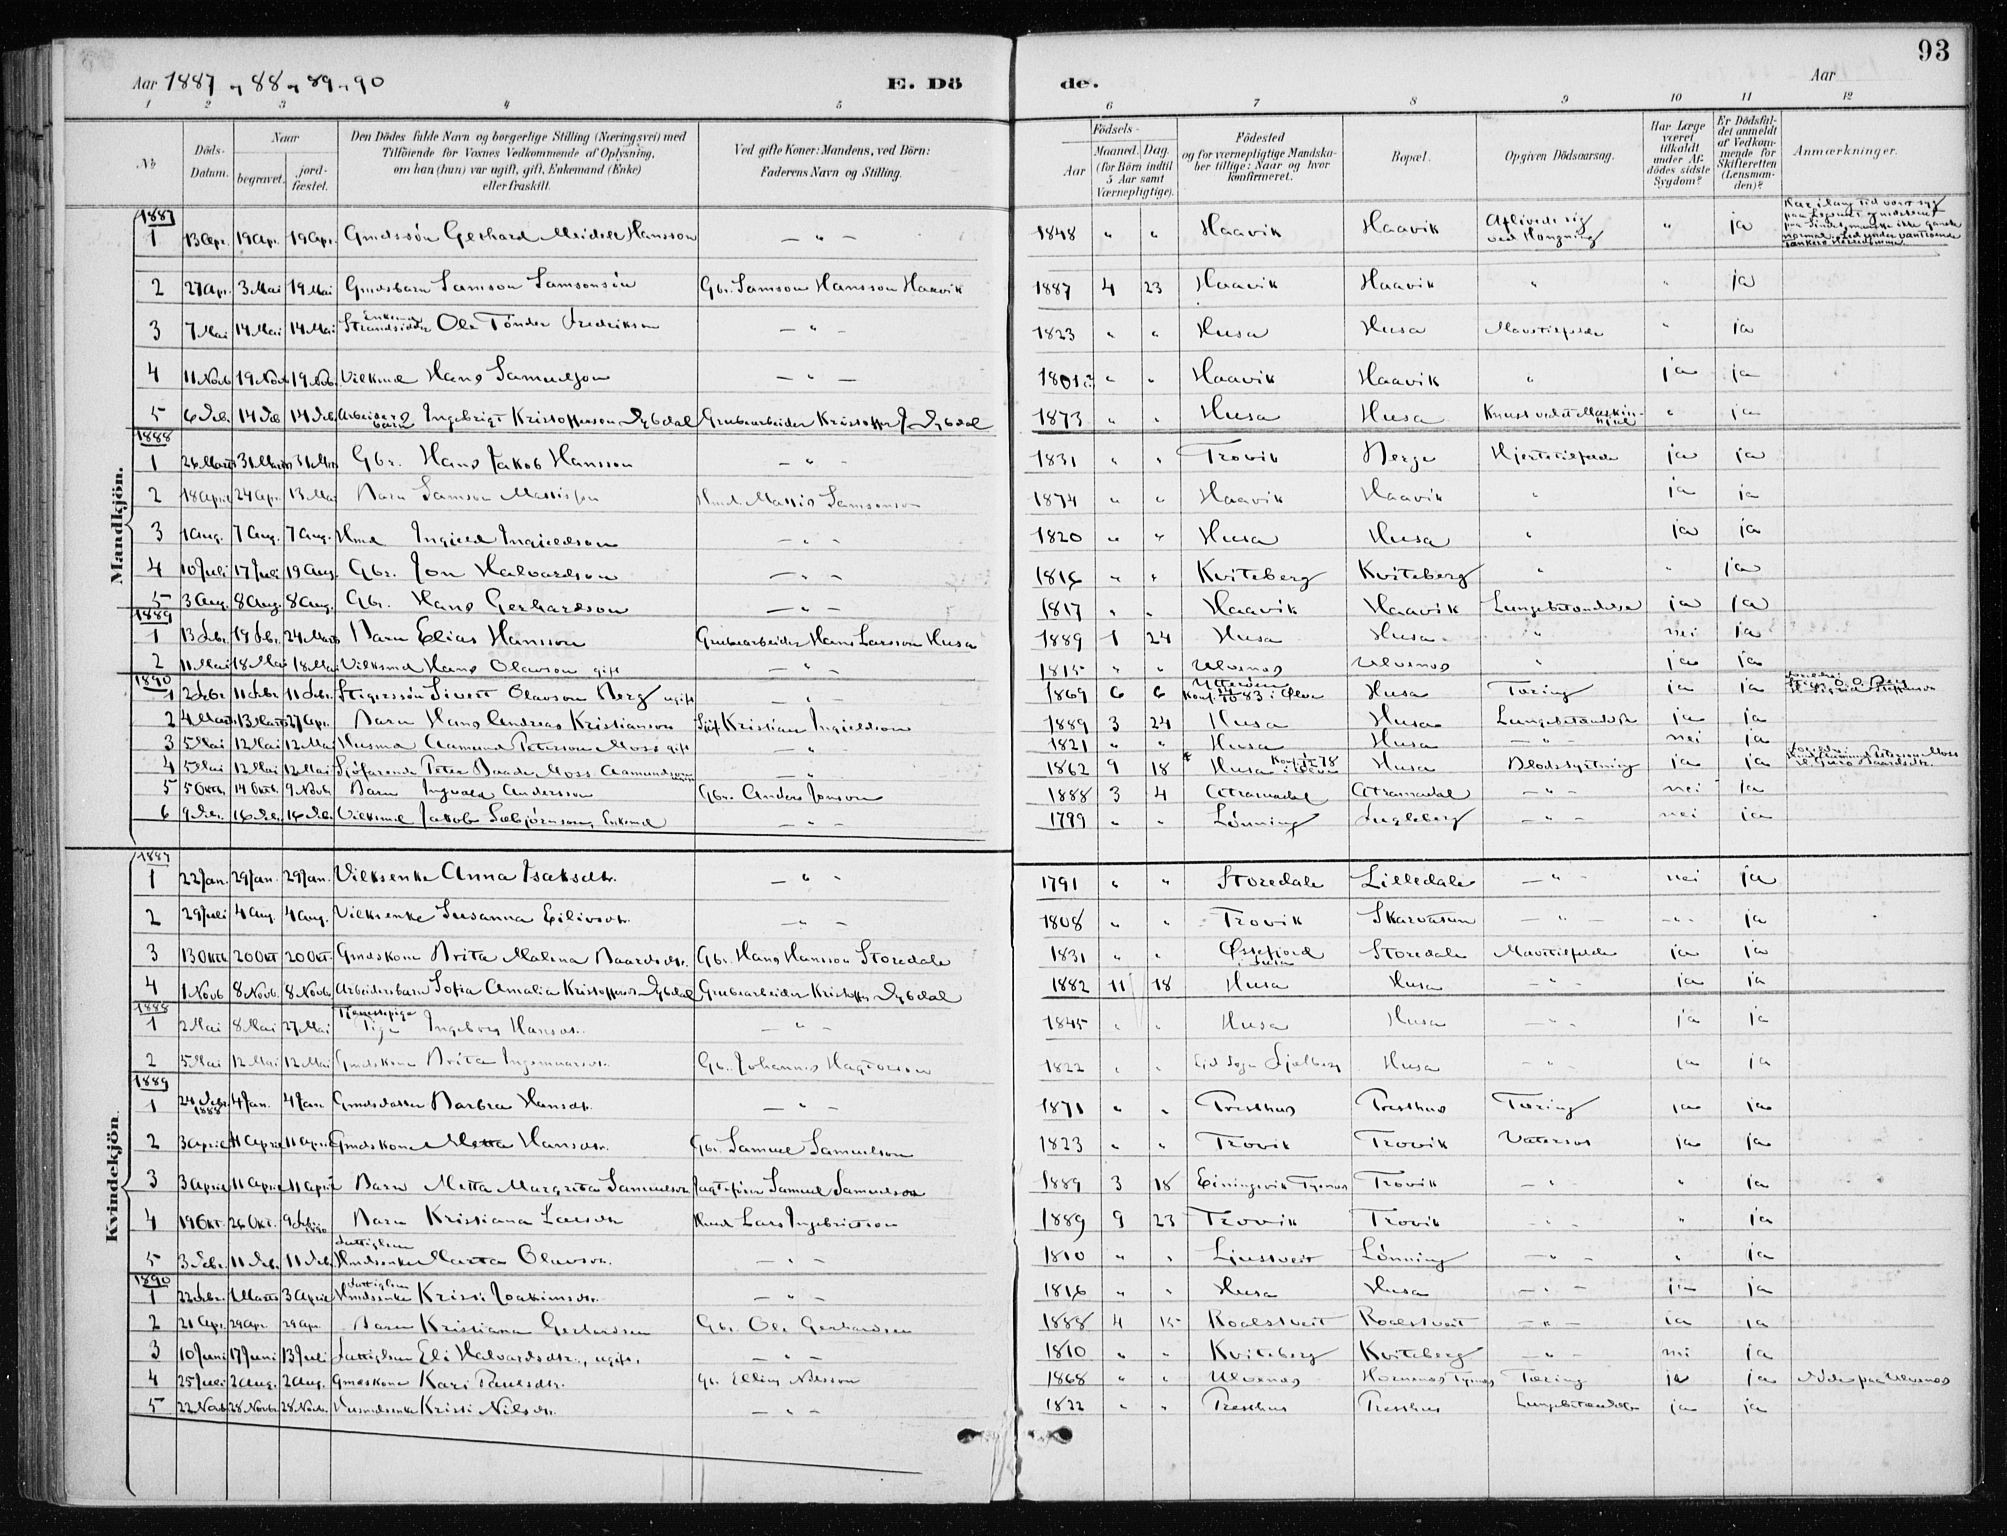 93
Aar 1887 og 88 og 89 og 90
E. Dö
de.
Aar
1 2 3 4 5 6 7 8 9 10 11 12
No
Döds-Datum.
Naar
begravet.
jord-fæstet.
Den Dödes fulde Navn og borgerlige Stilling (Næringsvei) med
Tilföiende for Voxnes Vedkommende af Oplysning,
om han (hun) var ugift, gift, Enkemand (Enke)
eller fraskilt.
Ved gifte Koner: Mandens, ved Börn:
Faderens Navn og Stilling.
Födsels-
Aar
Maaned. Dag.
(for Börn indtil
5 Aar samt
Værnepligtige).
Födested
og for værnepligtige Mandska-
ber tillige: Naar og hvor
konfirmeret.
Bopæl.
Opgiven Dödsaarsag.
Har Læge
været
tilkaldt
under Af-
dödes sidste
Sygdom?
Er Dödsfal-
det anmeldt
af Vedkom-
mende for
Skifteretten
(Lensman-
den)?
Anmærkninger.
Mandkjön.
1887
1 13 Apr. 19 Apr. 19 Apr. Gmdssön Gerhard Meidell Hansson — " — 1848 " " Haavik Haavik Aflivede sig ved Hængning " ja
2 27 Apr. 3 Mai 19 Mai Gmdsbarn Samson Samsonsön Gbr. Samson Hansson Haavik 1887 4 23 Haavik Haavik " " ja
3 7 Mai 14 Mai 14 Mai Enkemd Strandsidder Ole Tönder Fredrikson — " — 1823 " " Husa Husa Mavetilfælde " ja
4 11 Novb 19 Nov 19 Nov. Vilkmd Hans Samuelson — " — 1801 " " Haavik Haavik " ja ja
5 6 Deb 14 Deb 14 Deb Arbeiderbarn Ingebrigt Kristofferson Dybdal Grubearbeider Kristoffer J Dybdal 1873 " " Husa Husa Knust ved et Maskinhjul " ja
1888
1 24 Marts 31 Marts 31 Mrs Gbr. Hans Jakob Hansson — " — 1831 " " Trovik Berge Hjertetilfælde ja ja
2 18 April 24 Apr. 13 Mai Barn Samson Mattisson Hmd. Mattis Samsonson 1874 " " Haavik Haavik " ja ja
3 1 Aug. 7 Aug. 7 Aug. Hmd Ingield Ingieldson — " — 1820 " " Husa Husa " ja ja
4 10 Juli 17 Juli 19 Aug. Gbr. Jon Halvardson — " — 1816 " " Kviteberg Kviteberg " " ja
5 3 Aug. 8 Aug. 8 Aug. Gbr. Hans Gerhardson — " — 1817 " " Haavik Haavik Lungebetændelse ja ja
1889
1 13 Febr. 19 Febr. 24 Marts Barn Elias Hansson Grubearbeider Hans Larsson Husa 1889 1 24 Husa Husa " nei ja
2 11 Mai 18 Mai 18 Mai Vilksmd Hans Olavson gift — " — 1815 " " Ulvenos Ulvenos " ja ja
1890
1 2 Febr. 11 Febr. 11 Febr. Stigerssön Sivert Olavson Berg ugift " 1869 6 6 Ytteröen Konf. 83 i Ølve Husa Tæring ja ja
2 4 Marts 13 Marts 27 Apr. Barn Hans Andreas Kristianson Sjöf Kristian Ingieldson 1889 3 24 Husa Husa Lungebetændelse ja ja
3 5 Mai 12 Mai 12 Mai Husmd Aamund Peterson Moss gift — " — 1821 " " Husa Husa — " — nei ja
4 5 Mai 12 Mai 12 Mai Sjöfarende Peter Baader Moss Aamundson — " — 1862 9 18 Husa Konf. 78 i Ølve Husa Blodspytning ja ja
5 5 Oktb. 14 Oktb. 9 Novb. Barn Ingvald Andersson Gbr. Anders Jonson 1888 3 4 Atramadal Atramadal — " — nei ja
6 9 Deb. 16 Deb. 16 Deb. Vilksmd Jakob Sæbjörnson, Enkemd — " — 1799 " " Lönning Fugleberg — " — nei ja
Kvindekjön.
1887
1 22 Jan. 29 Jan. 29 Jan. Vilksenke Anna Isaksdtr. — " — 1791 " " Storedale Lilledale — " — nei ja
2 29 Juli 4 Aug. 4 Aug. Vilksenke Susanna Eilivsdtr. — " — 1808 " " Trovik Skarvatun — " — — " — ja
3 13 Oktb. 20 Okt 20 Okt. Gmdskone Brita Malena Baardsdtr. Gbr. Hans Hansson Storedale 1831 " " Østefjord Storedale Mavetilfælde ja ja
4 1 Novb 8 Novb. 8 Novb. Arbeidersbarn Sofia Amalia Kristoffersd Dybdal Grubearbeider Kristoffer Dybdal 1882 11 18 Husa Husa — " — ja ja
1888
1 2 Mai 8 Mai 27 Mai Tjenestepige Pige Ingeborg Hansdtr. — " — 1845 " " Husa Husa — " — ja ja
2 5 Mai 12 Mai 12 Mai Gmdskone Brita Ingemunsdtr. Gbr. Johannes Hagtorson 1822 " " Eid Sogn Fjelberg Husa — " — ja ja
1889
1 24 Debr. 1888 4 Jan. 4 Jan. Gmdsdatter Barbra Hansdtr. — " — 1871 " " Presthus Presthus Tæring ja ja
2 3 April 11 April 11 April Gmdskone Metta Hansdtr. Gbr. Samuel Samuelson 1823 " " Trovik Trovik Vatersot ja ja
3 3 April 11 April 11 April Barn Metta Margreta Samuelsdtr. Jagtefører Samuel Samuelson 1889 3 18 Einingevik Tysnes Trovik — " — " ja
4 19 Okt. 26 Okt. 9 Feb. 1890 Barn Kristiana Larsdtr Hmd Lars Ingebrittson 1889 9 23 Trovik Trovik — " — " ja
5 3 Debr. 11 Debr. 11 Debr. Fattiglem Hmdsenke Marta Olavsdtr. — " — 1810 " " Ljustveit Lönning — " — " ja
1890
1 22 Febr. 1 Marts 3 April Fattiglem Hmdsenke Kristi Joakimsdtr. — " — 1816 " " Husa Husa — " — ja ja
2 21 Apr. 29 Apr. 29 Apr. Barn Kristiana Gerhardsen Gbr. Ole Gerhardsen 1888 4 15 Roaldstveit Roaldstveit — " — ja ja
3 10 Juni 17 Juni 13 Juli Fattiglem Eli Halvardsdtr., ugift. — " — 1810 " " Kviteberg Kviteberg — " — nei ja
4 25 Juli 2 Aug. 2 Aug. Gmdskone Kari Paulsdtr. Gbr. Elling Nilsson 1868 " " Ulvenos Hornenos Tysnes Tæring ja ja Döde paa Ulvenos
5 22 Novb 28 Novbr. 28 Novb. Husmdsenke Kristi Nilsdtr. — " — 1822 " " Presthus Presthus Lungebetændelse ja ja